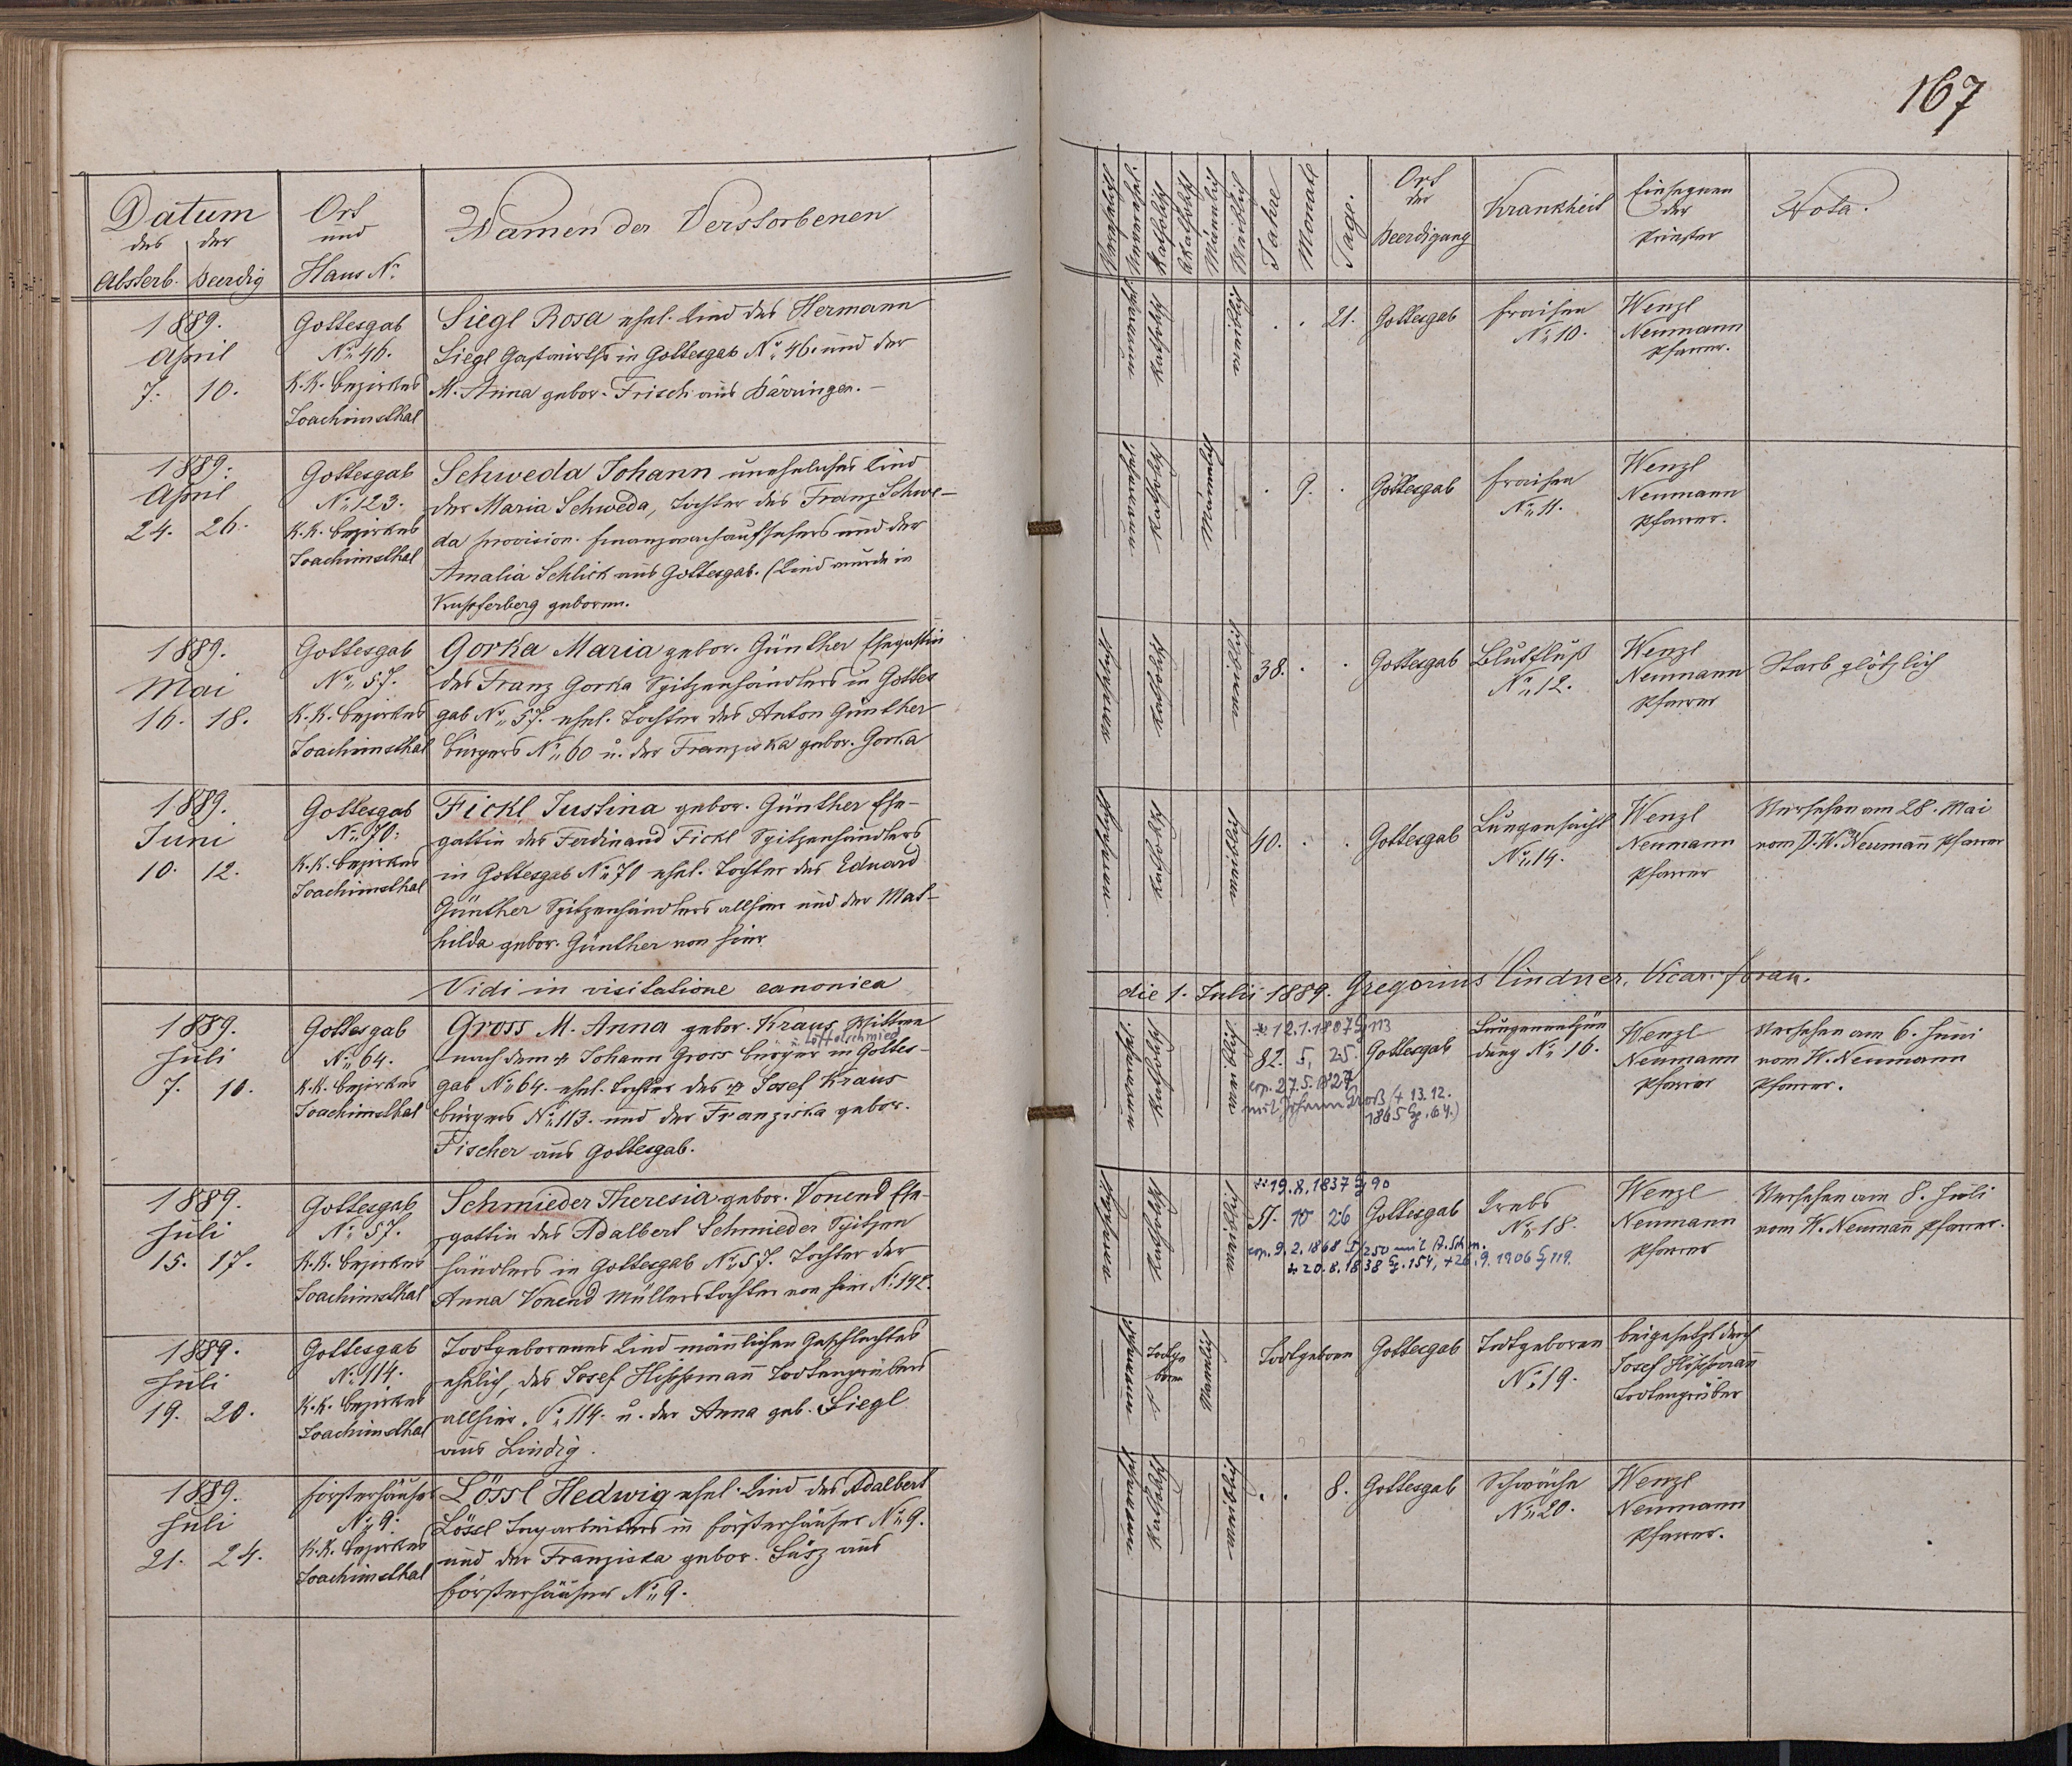 167
Datum
des der
Absterb. Beerdig
Ort
und
Haus No
Namen der Verstorbenen
1889.
April
7. 10.
Gottesgab
No 46.
K.K. Bezirkes
Joachimsthal
Siegl Rosa ehel. Kind des Hermann
Siegl Gastwirths in Gottesgab No 46. und der
M. Anna gebor. Frisch aus Bärringen. –
1889.
April
24. 26.
Gottesgab
No 123.
K.K. Bezirkes
Joachimsthal
Schweda Johann uneheliches Kind
der Maria Schweda, Tochter des Franz Schwe-
da provision. Finanzwachaufsehers und der
Amalia Schlick aus Gottesgab. (Kind wurde in
Kupferberg geboren.
1889.
Mai
16. 18.
Gottesgab
No 57.
K.K. Bezirkes
Joachimsthal
Gorka Maria gebor. Günther Ehegattin
des Franz Gorka Spitzenhändlers in Gottes
gab No 57. ehel. Tochter des Anton Günther
Bürgers No 60 u. der Franziska gebor. Gorka
1889.
Juni
10. 12.
Gottesgab
No 70.
K.K. Bezirkes
Joachimsthal
Fickl Justina gebor. Günther Ehe-
gattin des Ferdinand Fickl Spitzenhändlers
in Gottesgab No 70 ehel. Tochter des Eduard
Günther Spitzenhändlers allhier und der Mat-
hilda gebor. Günther von hier
Vidi in visitatione canonica
1889.
Juli
7. 10.
Gottesgab
No 64.
K.K. Bezirkes
Joachimsthal
Gross M. Anna gebor. Kraus Wittwe
u. Löffelschmied
nach dem † Johann Gross Bürger in Gottes-
gab No 64. ehel. Tochter des † Josef Kraus
Bürgers No 113. und der Franziska gebor.
Fischer aus Gottesgab.
1889.
Juli
15. 17.
Gottesgab
No 57.
K.K. Bezirkes
Joachimsthal
Schmieder Theresia gebor. Vonend Ehe-
gattin des Adalbert Schmieder Spitzen
händlers in Gottesgab No 57. Tochter der
Anna Vonend Müllerstochter von hier No 142.
1889.
Juli
19. 20.
Gottesgab
No 114.
K.K. Bezirkes
Joachimsthal
Todtgeborenes Kind männlichen Geschlechtes
ehelich, des Josef Hippmann Todtengräbers
allhier, No 114. u. der Anna geb. Siegl
aus Lindig.
1889.
Juli
21. 24.
Försterhäuser
No 9.
K.K. Bezirkes
Joachimsthal
Lössl Hedwig ehel. Kind des Adalbert
Lössl Tagarbeiters in Försterhäuser No 9.
und der Franziska gebor. Süsz aus
Försterhäuser No 9.
Katholisch
Männlich
Weiblich
Jahre
Monate
Tage.
Ort
der
Beerdigung
Krankheit
Einsegnen
der
Priester
Nota.
katholisch
weiblich
. . 21.
Gottesgab
Fraisen
No 10.
Wenzl
Neumann
Pfarrer.
katholisch
Männlich
. 9. .
Gottesgab
Fraisen
No 11.
Wenzl
Neumann
Pfarrer.
katholisch
weiblich
38. . .
Gottesgab
Blutfluß
No 12.
Wenzl
Neumann
Pfarrer
Starb plötzlich
katholisch
weiblich
40. . .
Gottesgab
Lungensucht
No 14.
Wenzl
Neumann
Pfarrer
Versehen am 28. Mai
vom P. W. Neumann Pfarrer
die 1. Julii 1889. Gregorius Lindner, Vicar. foran.
katholisch
weiblich
* 12.1.1807 G 113
82. 5. 25.
cop. 27.5.1827
mit Johann Groß († 13.12.
1865 G. 64.)
Gottesgab
Lungenentzün
dung No 16.
Wenzl
Neumann
Pfarrer
Versehen am 6. Juni
vom W. Neumann
Pfarrer.
katholisch
weiblich
* 19.8.1837 G 90
51. 10 26
cop. 9.2.1868 G 250 mit A. Schm.
* 20.8.1838 G. 154, † 26.9.1906 G 119.
Gottesgab
Krebs
No 18.
Wenzl
Neumann
Pfarrer
Versehen am 8. Juli
vom W. Neumann Pfarrer.
Todtge
boren
Männlich
Todtgeboren
Gottesgab
Todtgeboren
No 19.
beigesetzt durch
Josef Hippmann
Todtengräber
katholisch
weiblich
. . 8.
Gottesgab
Schwäche
No 20.
Wenzl
Neumann
Pfarrer.